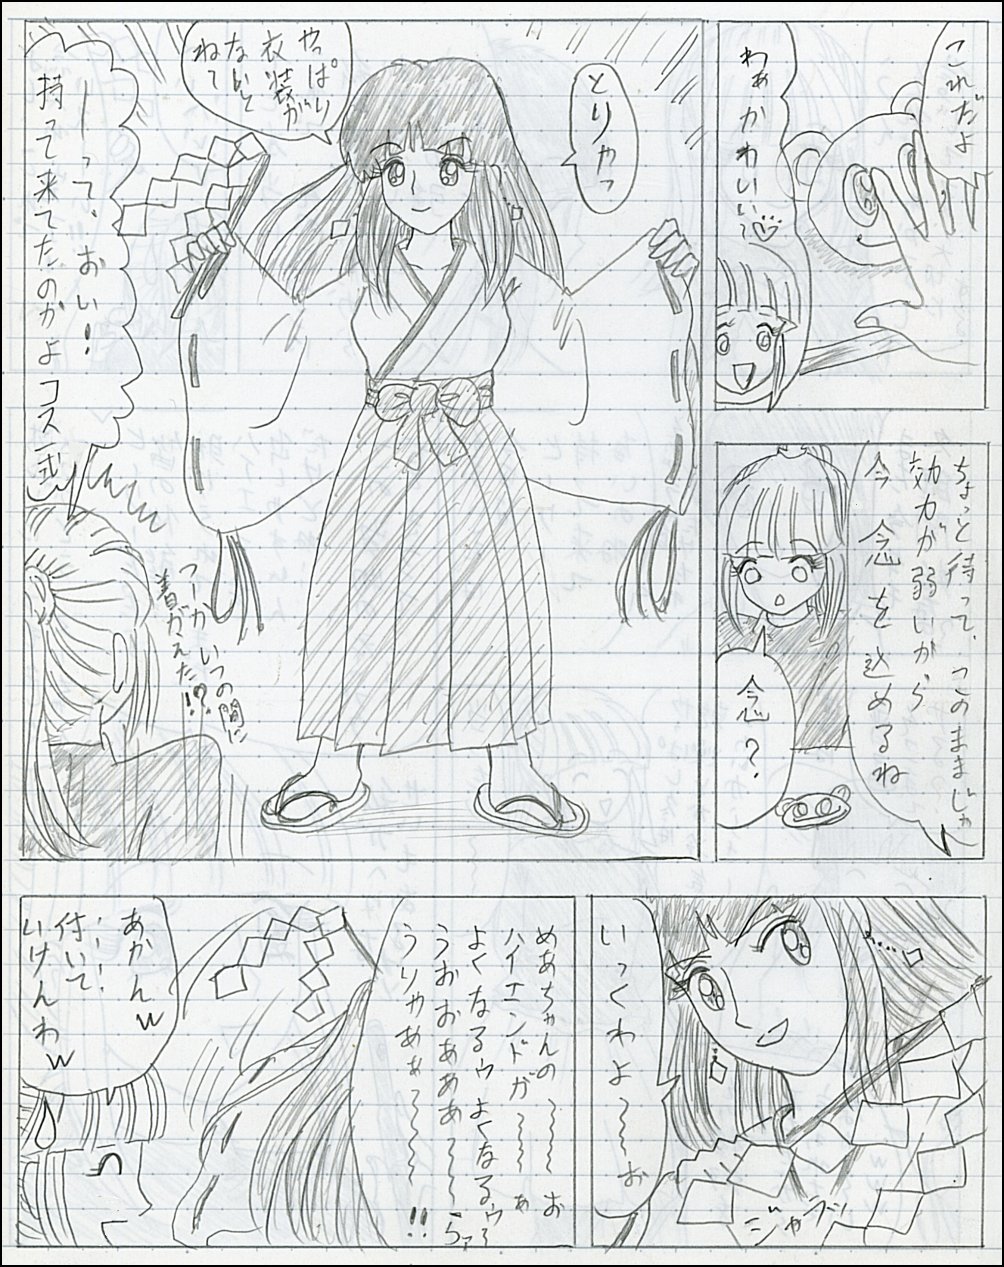 これだよ
わぁかわいい♡
ちょっと待って、このままじゃ
効力が弱いから
今 念を込めるね
念?
とりゃっ
やっぱり
衣装が
ないと
ねて
ーーって、おい!
持って来てたのかよコス一式
つーかいつの間に
着がえた!?
いっくわよ〜〜ぉ
ジャラッ
めあちゃんの〜〜〜 ぉ
ハイエンドが〜〜 ぁ
よくなるゥよくなるゥ〜
うおおぁああ〜〜〜らァ
うりゃあぁ〜〜〜〜!!
あかんw
付いて
いけんわw